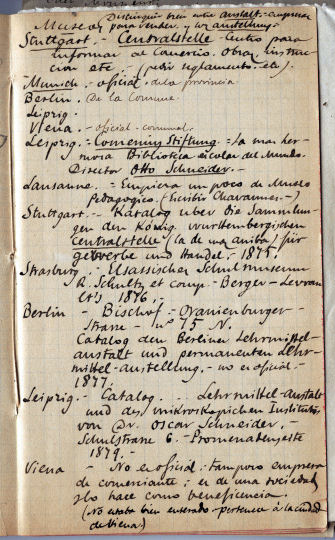 Distinguir bien entre anstalt-empresa
Museos para vender, y los austellung.-
Stuttgart.- Centralstelle. Centro para
informar de Comercio. Obras, instruc-
cion etc.- (pedir reglamento. etc)
Munich.- oficial. de la provincia
Berlin. De la Comune.
Leipzig.-
Viena.- oficial - comunal.
Leipzig.- Comenius Stiftung. = La mas her-
mosa Biblioteca escolar del Mundo.
Director Otto Schneider.-
Lausanne.- Empieza un poco de Museo
Pedagogico. (Escribir Chavannes.-)
Stuttgart.- Katalog über die Sammlun-
gen den König. wurttembergischen
Centralstelle (la de ua arriba) für
gewerbe und Handel.- 1875.
Strasburg.- Elsassischen Schulmuseum
R. Schultz et comp.- Berger-Levrau
lt's 1876.-
Berlin - Bischof.- Oranienburger-
Strasse - nº 75 N.
Catalog den Berliner Lehrmittel-
anstalt und permanenten Lehr-
mittel-austellung.- no es oficial.-
1877.-
Leipzig.- Catalog... Lehrmittel-Anstalt
und des mikroskopischen Instituts
von Dr. Oscar Schneider.-
Schulstrasse 6.- Promenadenseite
1879.-
Viena - No es oficial.- tampoco empresa
de comerciante; es de una sociedad
qlo hace como beneficencia.
(No estaba bien enterado - pertenece á la ciudad
de Viena)